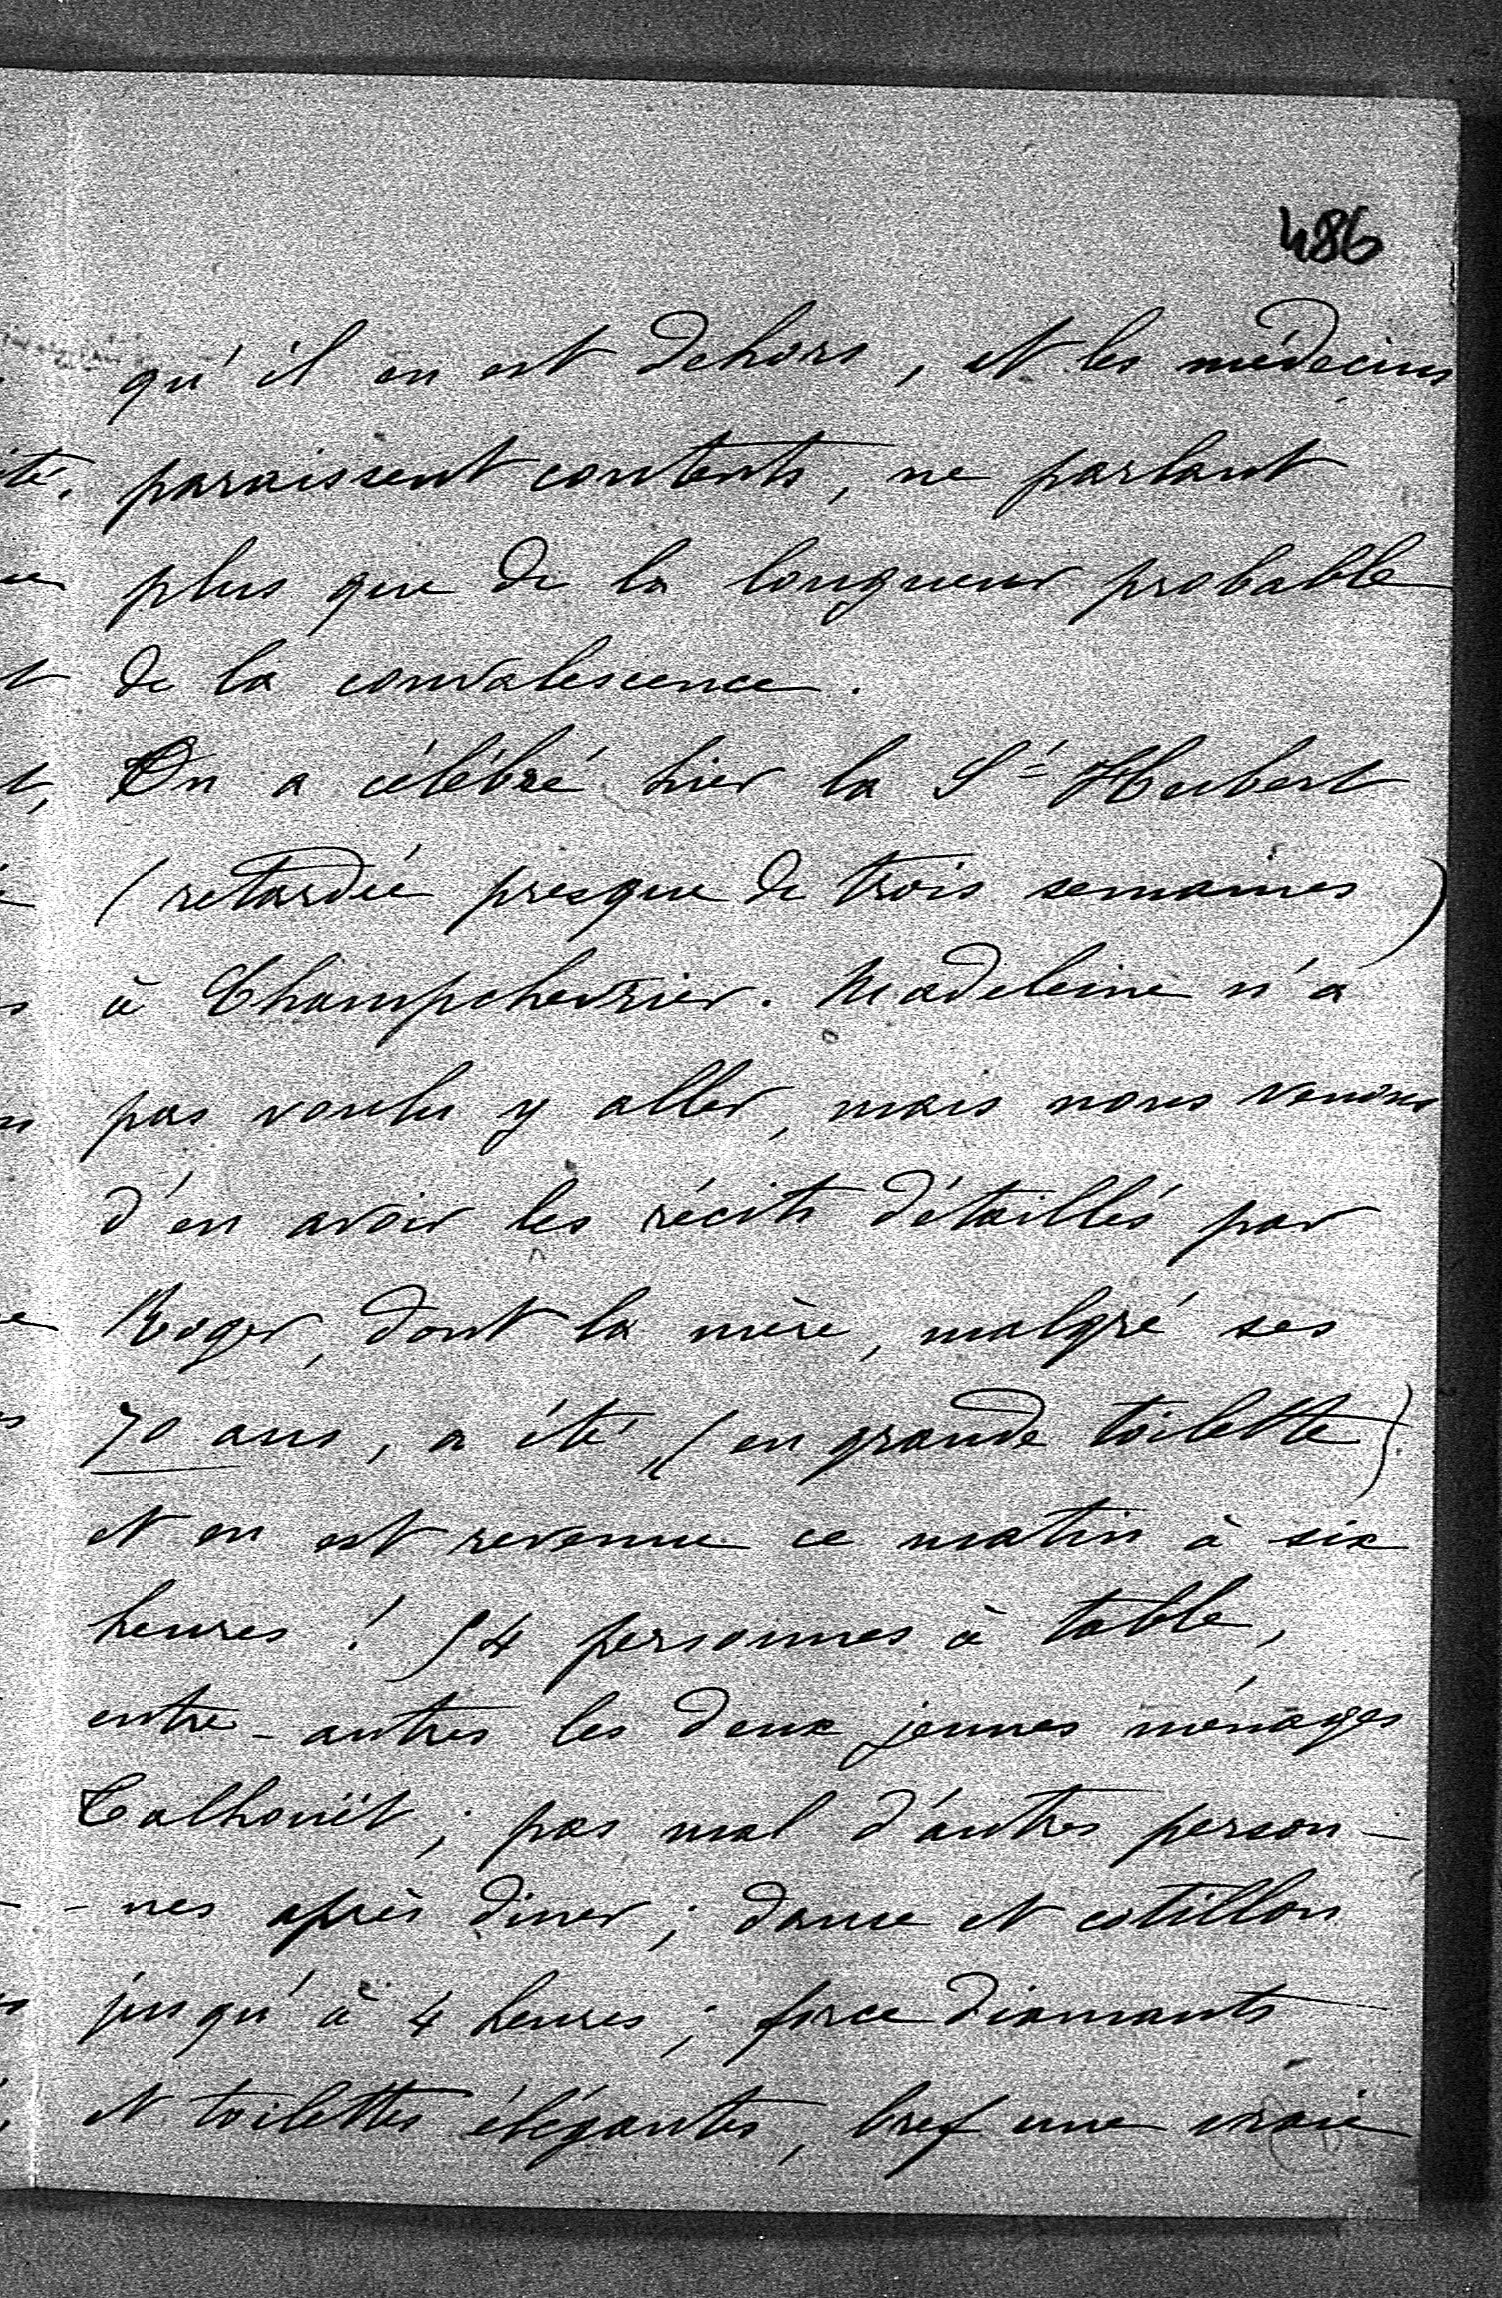 486
qu'il en est dehors, et les médecins
paraissent contents, ne parlant
plus que de la longueur probable
de la convalescence.
On a célébré hier la St Hubert
(retardée presque de trois semaines)
à Champchevrier. Madeleine n'a
pas voulu y aller, mais nous venons
d'en avoir les récits détaillés par
Roger, dont la mère, malgré ses
70 ans, a été (en grande toilette)
et en est revenue ce matin à six
heures ! 54 personnes à table,
entre-autres les deux jeunes ménages
Talhouët ; pas mal d'autres person-
-nes après diner ; danse et cotillon
jusqu'à 4 heures ; force diamants
et toilettes élégantes, bref une vraie